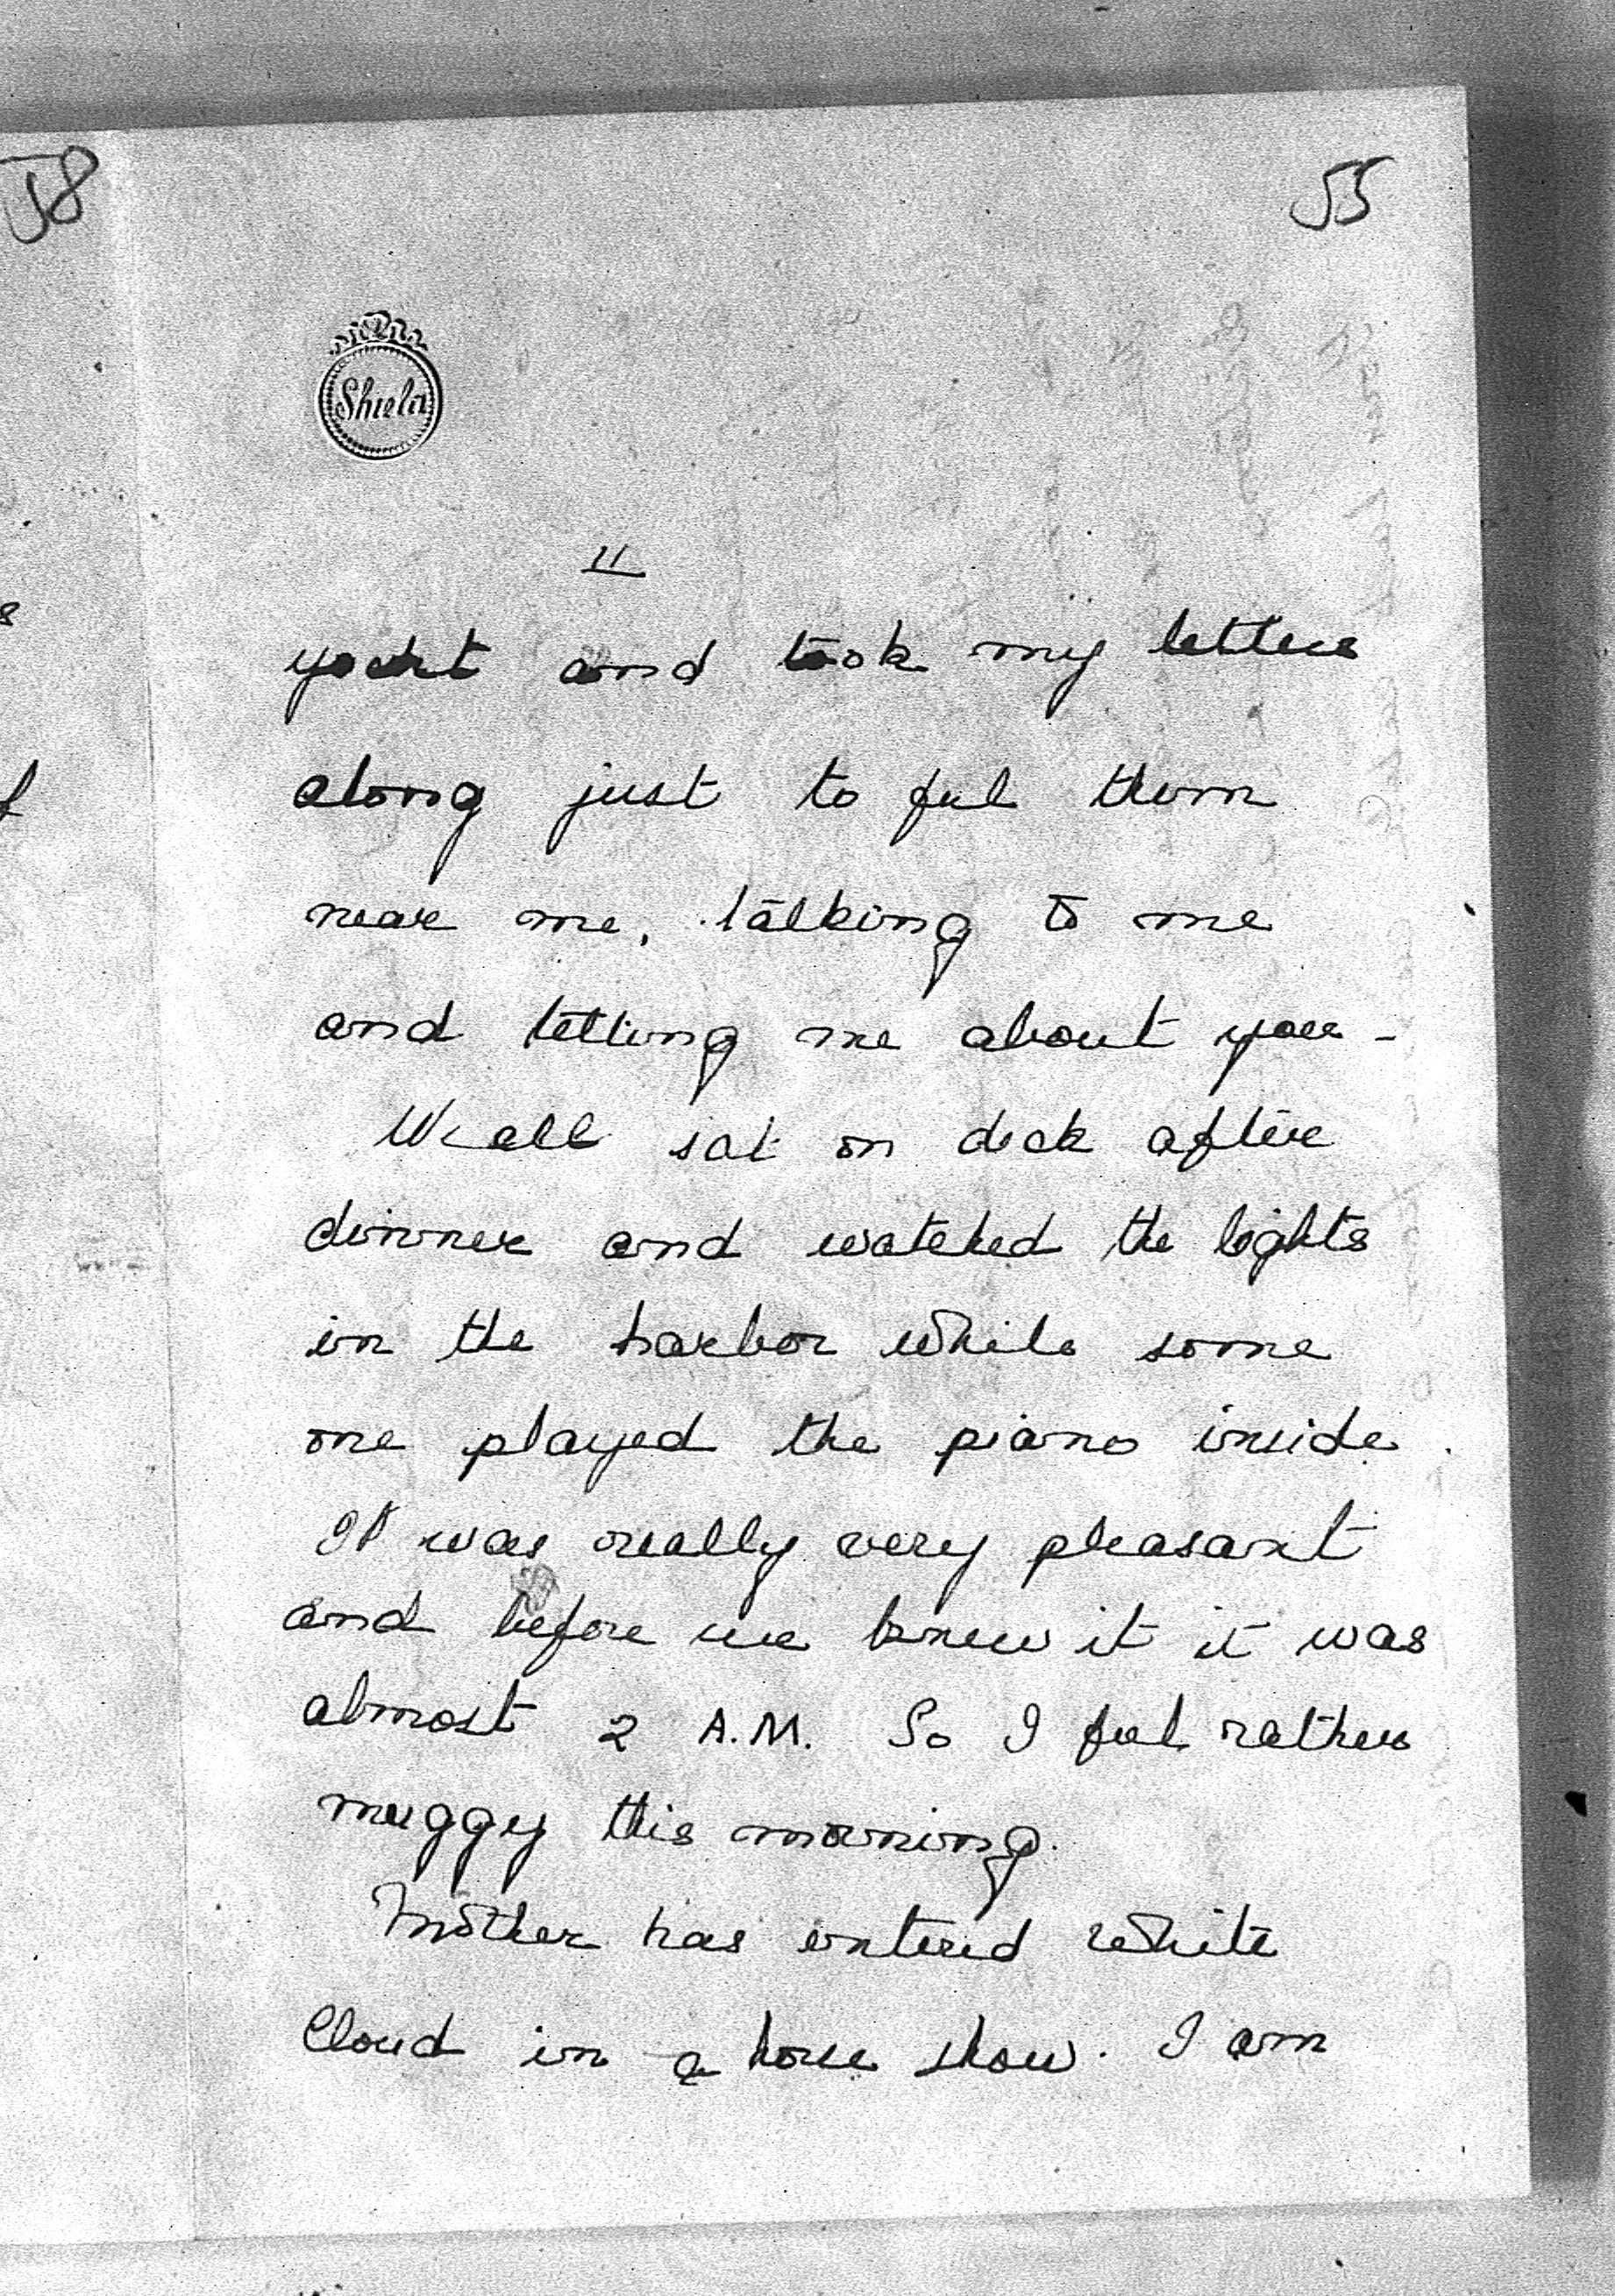 58
55
Shiela
11
yacht and took my letters
along just to feel them
near me, talking to me
and telling me about you -
We all sat on deck after
dinner and watched the lights
in the harbor while some
one played the piano inside.
It was really very pleasant
and before we knew it it was
almost 2 A.M. So I feel rather
muggy this morning.
Mother has entered White
Cloud in a horse show. I am